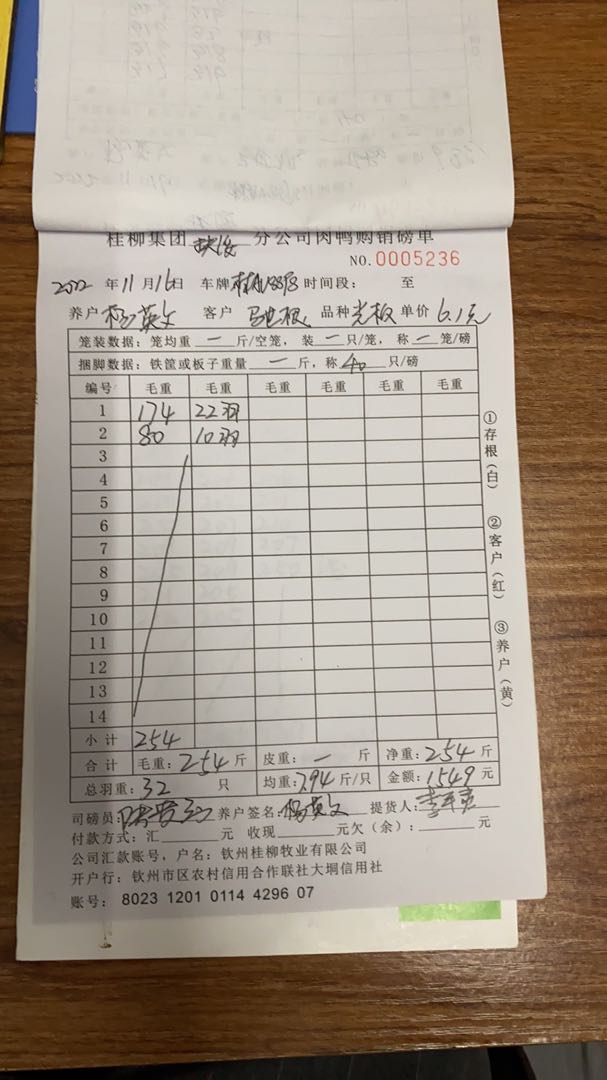 桂柳集团 分公司肉鸭购销磅单
NO.0005236
2022 年 11 月 16日 车牌 时间段: 至
养户 杨英文 客户 马世根 品种 光板 单价 6.1元
笼装数据: 笼均重 一 斤/空笼, 装 一 只/笼, 称 一 笼/磅
捆脚数据: 铁筐或板子重量 一 斤, 称 40 只/磅
编号 毛重 毛重 毛重 毛重 毛重 毛重
1 174 22羽
2 80 10羽
3
4
5
6
7
8
9
10
11
12
13
14
小计 254
合计 毛重: 254 斤 皮重: 一 斤 净重: 254 斤
总羽重: 32 只 均重: 7.94 斤/只 金额: 1549 元
司磅员: 养户签名: 杨英文 提货人:
付款方式: 汇 元 收现 元欠(余): 元
公司汇款账号, 户名: 钦州桂柳牧业有限公司
开户行: 钦州市区农村信用合作联社大垌信用社
账号: 8023 1201 0114 4296 07
①存根(白)
②客户(红)
③养户(黄)